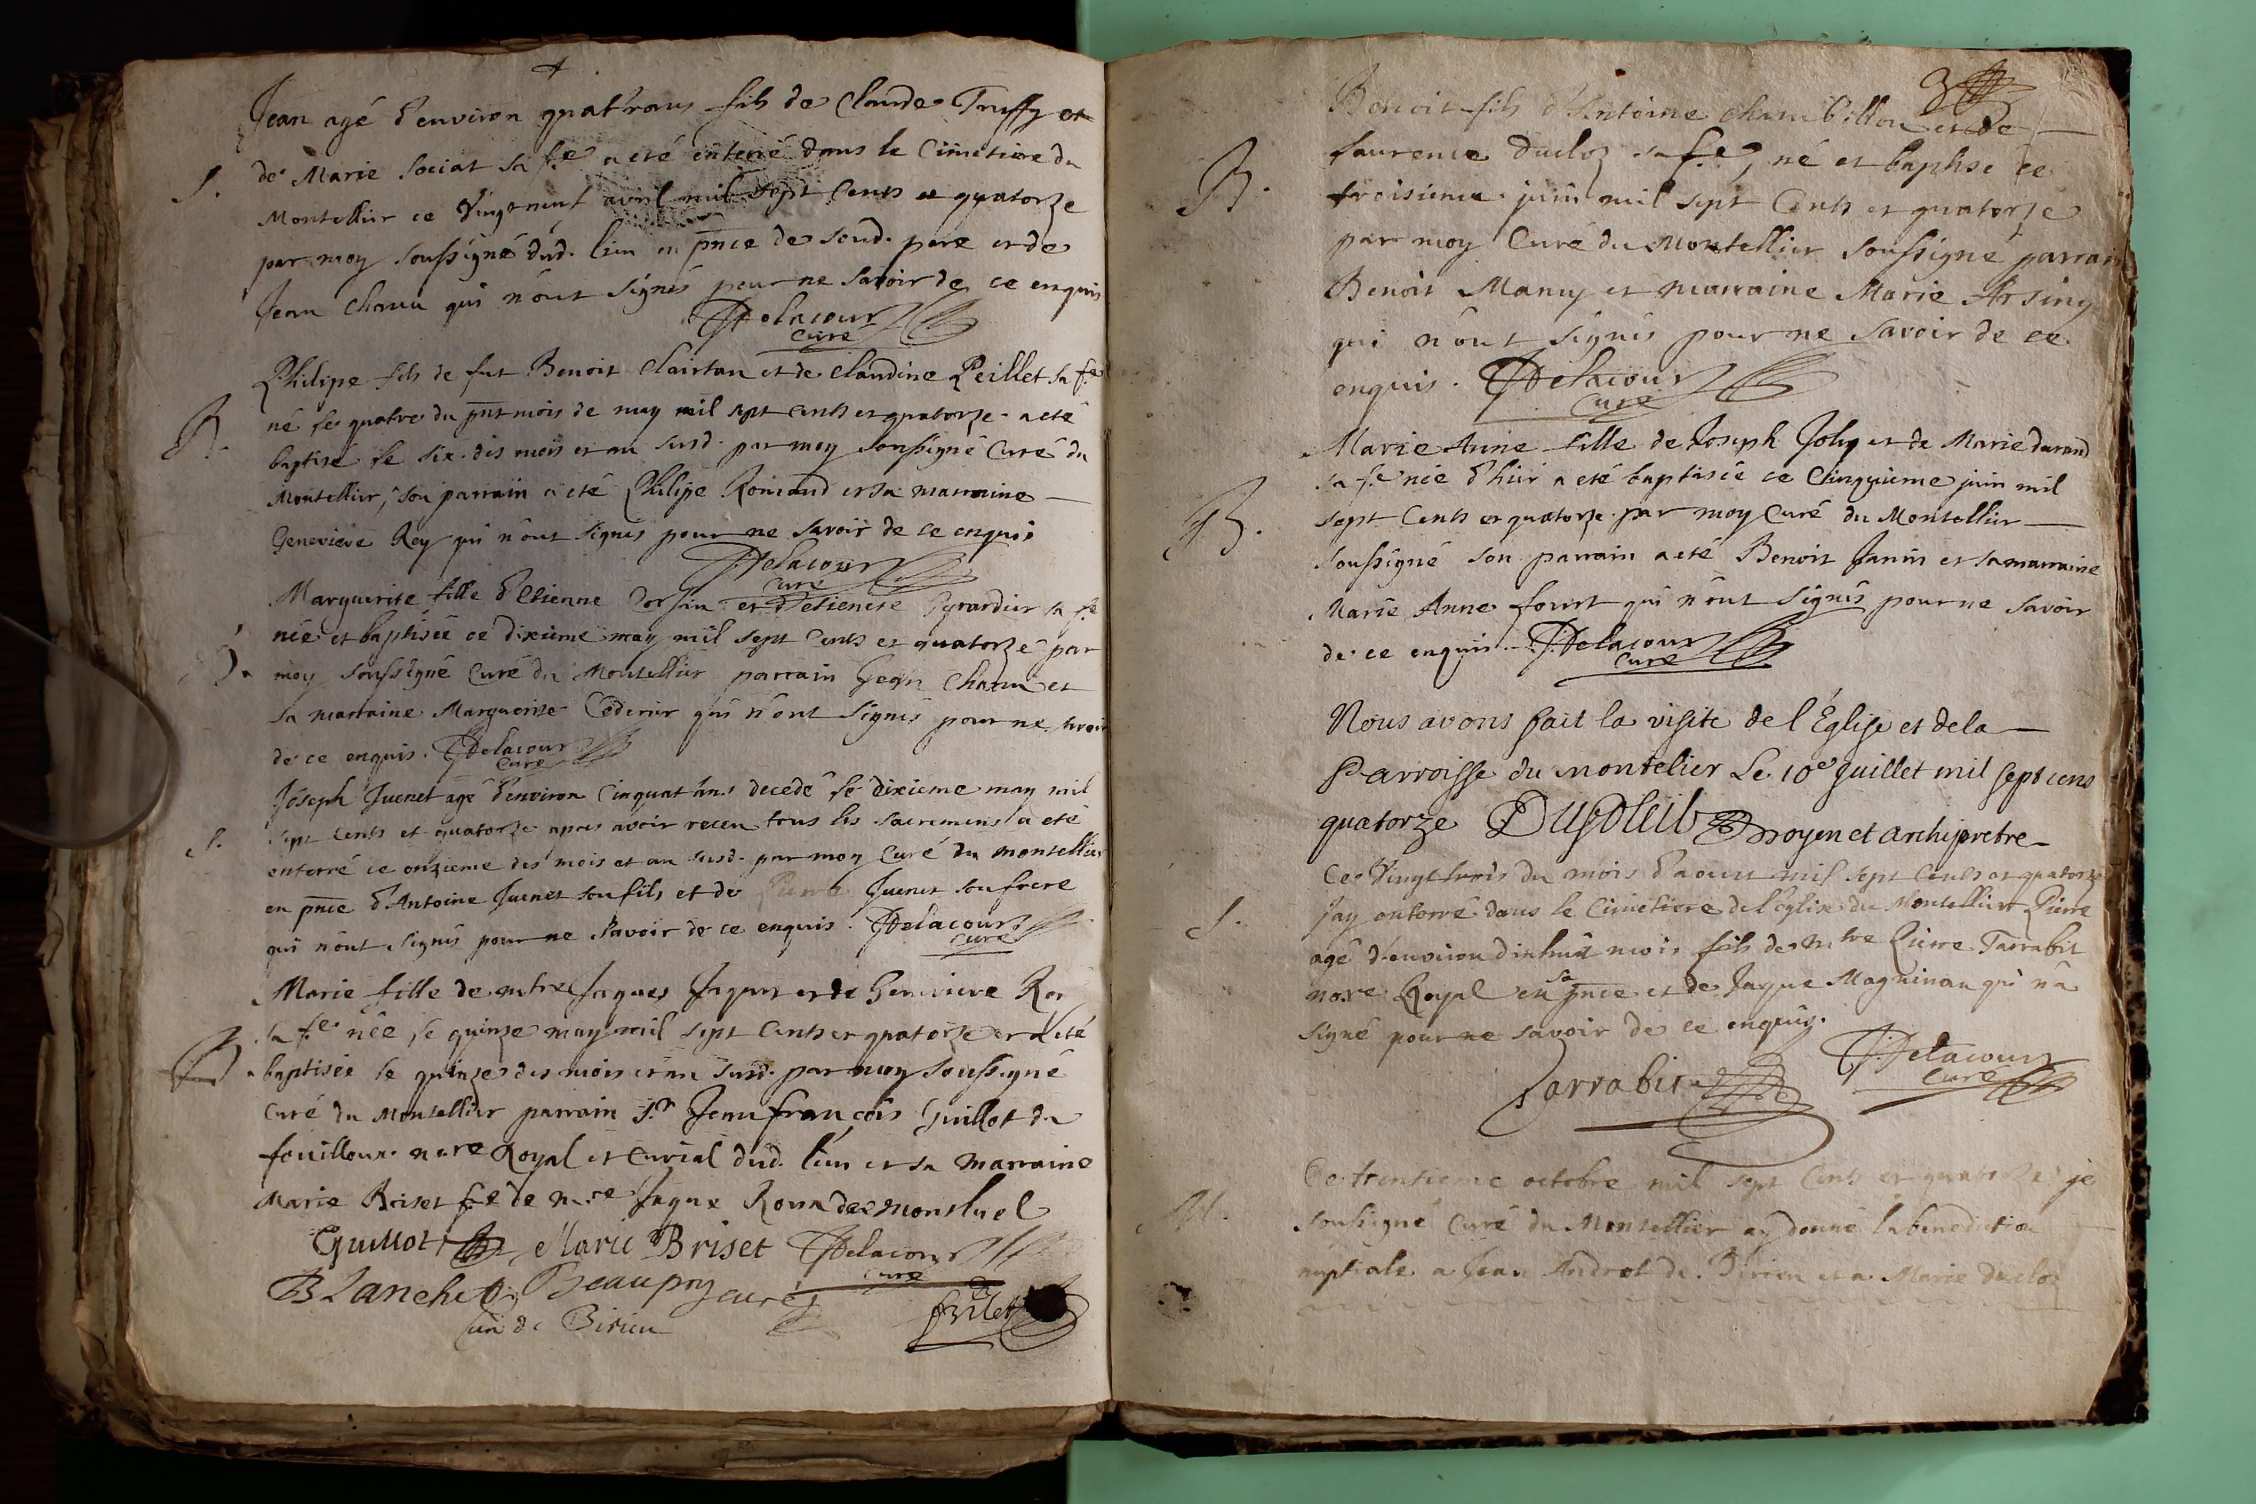 Jean agé d'environ quatr'ans fils de Claude Truffy et
S. de Marie Sociat sa f.e a eté enterré dans le Cimetiere du
Montellier ce Vingt neuf avril mil sept Cents et quatorze
par moy soussigné dud. lieu en pnce de sond. pere et de
Jean Charu qui n'ont signés pour ne savoir de ce enquis
Delacour
Curé
Philipe fils de fut Benoit Clairtan et de Claudine Peillet sa f.e
né le quatre du pnt mois de may mil sept cents et quatorze a eté
B. baptisé le six dis mois et an susd. par moy soussigné Curé du
Montellier, son parrain a eté Philipe Romand et sa marraine
Genevieve Rey qui n'ont signés pour ne savoir de ce enquis
Delacour
Curé
Marguerite fille d'Etienne et d'Etienete Gyrardier sa f.e
née et baptisée ce dixieme may mil sept Cents et quatorze par
B. moy soussigné Curé du Montellier parrain Jean Charu et
sa marraine Marguerite qui n'ont signés pour ne savoir
de ce enquis. Delacour
Curé
Joseph Juenet agé d'environ Cinquat'ans decedé le dixieme may mil
S. sept Cents et quatorze apres avoir receu tous les sacremens a eté
enterré ce onzieme dis mois et an susd. par moy Curé du montellier
en pnce d'Antoine Juenet son fils et de Pierre Juenet son frere
qui n'ont signés pour ne savoir de ce enquis. Delacour
Curé
Marie fille de mtre Jaques Jaquet et de Genevieve Rey
sa f.e née le quinze may mil sept Cents et quatorze et a eté
B. baptisée le quinze dis mois et an susd. par moy soussigné
Curé du Montellier parrain S.r Jean françois Guillot du
fouilloux n.re Royal et Curial dud. lieu et sa marraine
Marie Briset f.e de m.re Jaque Roux de montluel
Guillot Marie Briset Delacour
Curé
Blanchet Beaupry curé
Curé de Birieu
3
Benoit fils d'Antoine Chambillon et de
B. Laurence Ducloz sa f.e, né et baptisé ce
troisieme juin mil sept Cents et quatorze
par moy Curé du Montellier soussigné parrain
Benoit Many et marraine Marie Arsing
qui n'ont signés pour ne savoir de ce
enquis. Delacour
Curé
Marie Anne fille de Joseph Joly et de Marie durand
sa f.e née d'hier a eté baptisée ce Cinquieme juin mil
B. sept Cents et quatorze par moy Curé du Montellier
soussigné son parrain a eté Benoit Janin et sa marraine
Marie Anne foret qui n'ont signés pour ne savoir
de ce enquis. Delacour
Curé
Nous avons fait la visite de l'Église et de la
Parroisse du montelier Le 10e juillet mil sept cens
quatorze Dusoleil Doyen et archiprêtre
Ce Vingt trois du mois d'aoust mil sept Cents et quatorze
S. j'ay enterré dans le Cimetiere de l'eglise du Montellier Pierre
agé d'environ dixhuit mois fils de mtre Pierre Tarrabit
no.re Royal en sa pnce et de Jaque Magninan qui n'a
signé pour ne savoir de ce enquis.
Tarrabit Delacour
Curé
Ce trentieme octobre mil sept Cents et quatorze je
M. soussigné Curé du Montellier ay donné la benediction
nuptiale a Jean Androt de Birieu et a Marie ducloz